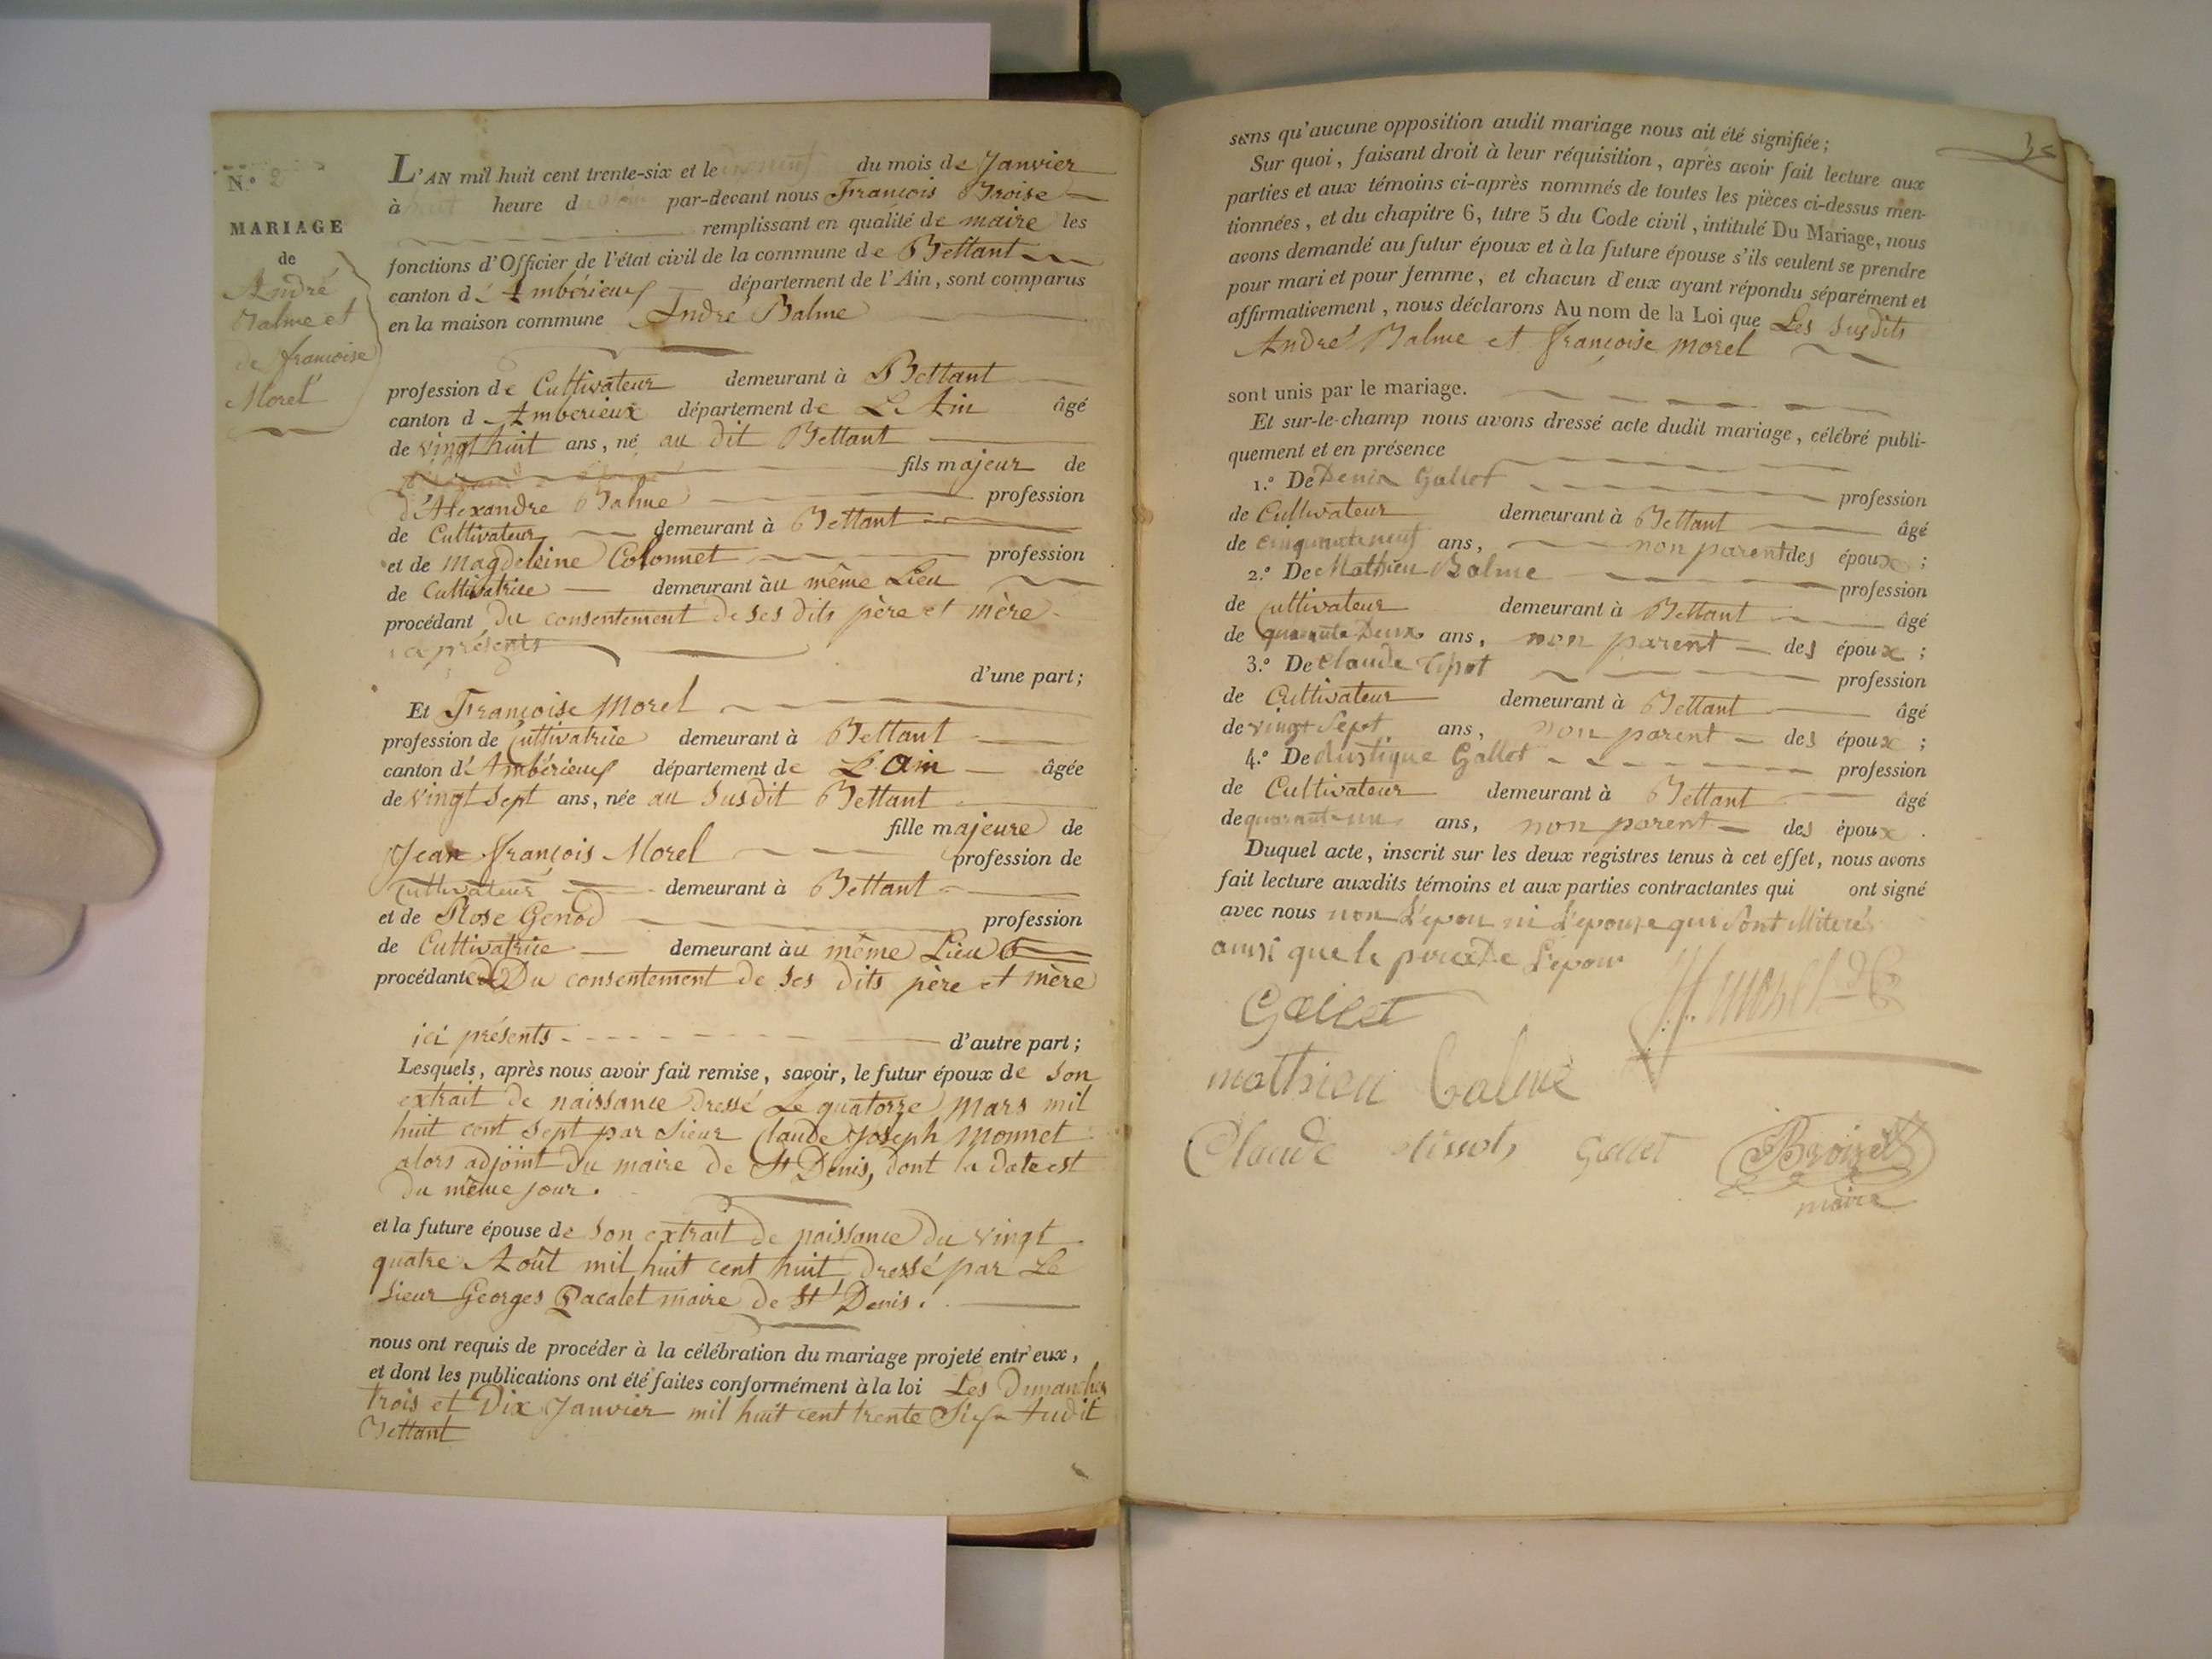 N.º 2
MARIAGE
de
André
Balme et
de françoise
Morel
L'AN mil huit cent trente-six et le dix neuf du mois de Janvier
à huit heure d par-devant nous François
remplissant en qualité de maire les
fonctions d'Officier de l'état civil de la commune de Bettant
canton d'Ambérieux département de l'Ain, sont comparus
en la maison commune André Balme
profession de Cultivateur demeurant à Bettant
canton d'Amberieux département de L'Ain âgé
de vingt huit ans, né au dit Bettant
fils majeur de
d'Alexandre Balme profession
de Cultivateur demeurant à Bettant
et de Magdeleine Colomnet profession
de Cultivatrice demeurant àu même Lieu
procédant du consentement de ses dits père et mère
ici présents
d'une part;
Et Françoise Morel
profession de Cultivatrice demeurant à Bettant
canton d'Ambérieux département de L'Ain âgée
de vingt sept ans, née au susdit Bettant
fille majeure de
Jean françois Morel profession de
Cultivateur demeurant à Bettant
et de Rose Genod profession
de Cultivatrice demeurant àu même Lieu
procédante Du consentement de ses dits père et mère
ici présents d'autre part;
Lesquels, après nous avoir fait remise, savoir, le futur époux de son
extrait de naissance dressé Le quatorze Mars mil
huit cent sept par Sieur Claude Joseph Monnet
alors adjoint du maire de St Denis, dont la date est
du même jour.
et la future épouse de son extrait de naissance du vingt
quatre Août mil huit cent huit dressé par Le
Sieur Georges Pacalet maire de St Denis.
nous ont requis de procéder à la célébration du mariage projeté entr'eux,
et dont les publications ont été faites conformément à la loi Les Dimanches
trois et Dix Janvier mil huit cent trente Six Audit
Bettant
sans qu'aucune opposition audit mariage nous ait été signifiée;
Sur quoi, faisant droit à leur réquisition, après avoir fait lecture aux
parties et aux témoins ci-après nommés de toutes les pièces ci-dessus men-
tionnées, et du chapitre 6, titre 5 du Code civil, intitulé Du Mariage, nous
avons demandé au futur époux et à la future épouse s'ils veulent se prendre
pour mari et pour femme, et chacun d'eux ayant répondu séparément et
affirmativement, nous déclarons Au nom de la Loi que Les susdits
André Balme et françoise Morel
sont unis par le mariage.
Et sur-le-champ nous avons dressé acte dudit mariage, célébré publi-
quement et en présence
1.º De Denis Gallet profession
de Cultivateur demeurant à Bettant âgé
de cinquante neuf ans, non parent des époux;
2.º De Mathieu Balme profession
de Cultivateur demeurant à Bettant âgé
de quarante Deux ans, non parent des époux;
3.º De Claude profession
de Cultivateur demeurant à Bettant âgé
de vingt Sept ans, non parent des époux;
4.º De Rustique Gallet profession
de Cultivateur demeurant à Bettant âgé
de quarante un ans, non parent des époux.
Duquel acte, inscrit sur les deux registres tenus à cet effet, nous avons
fait lecture auxdits témoins et aux parties contractantes qui ont signé
avec nous non L'epou ni L'epouse qui Sont illiterés
ainsi que le pere De L'epou
Gallet
J f morel
mathieu balme
Claude
Gallet
maire